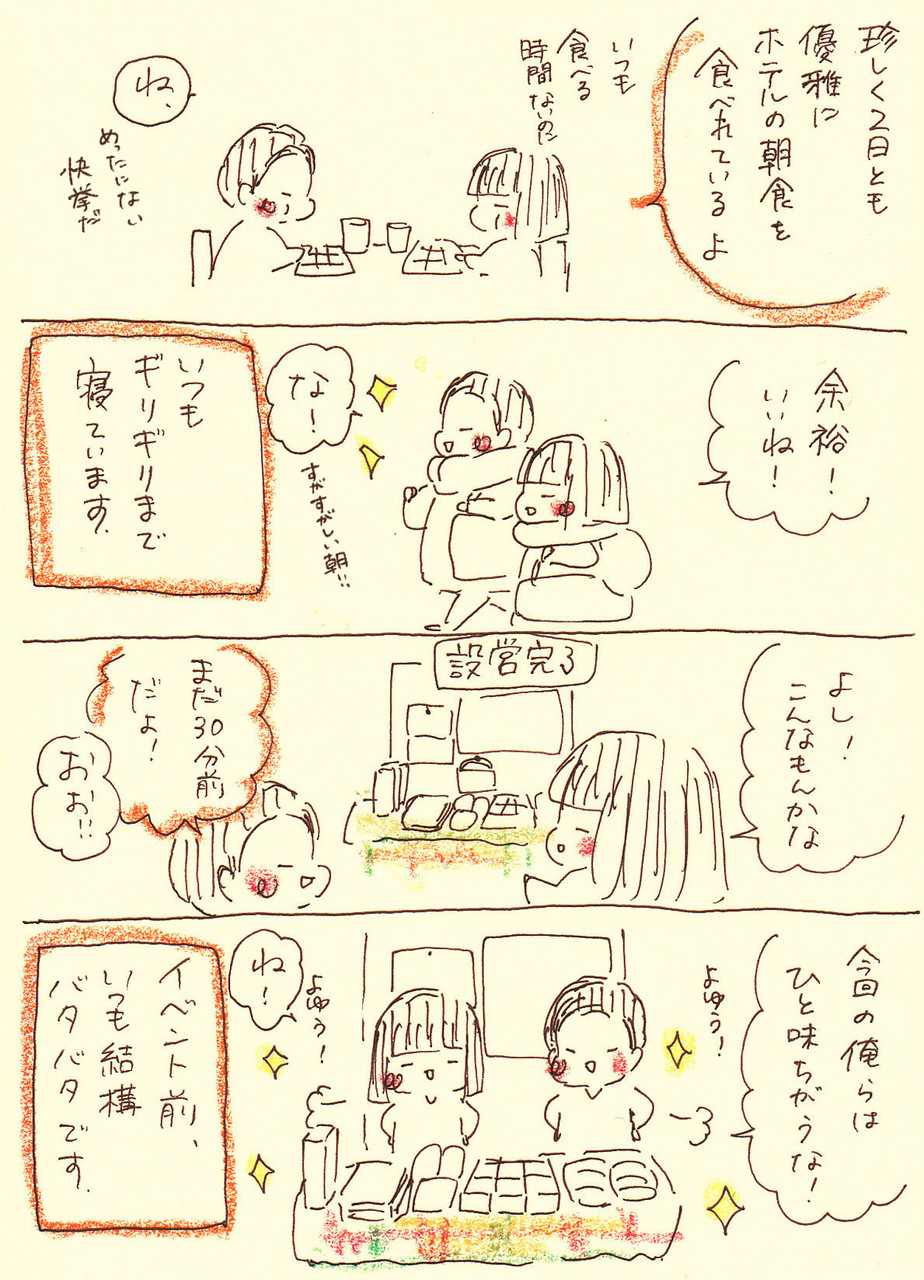 珍しく2日とも
優雅に
ホテルの朝食を
食べれているよ
いつも
食べる
時間ないのに
ね、
めったにない
快挙だ
余裕！
いいね！
な！
すがすがしい朝！！
いつも
ギリギリまで
寝ています。
よし！
こんなもんかな
設営完了
まだ30分前
だよ！
おお！！
今回の俺らは
ひと味ちがうな！
よゆう！
よゆう！
ね！
イベント前、
いつも結構
バタバタです。